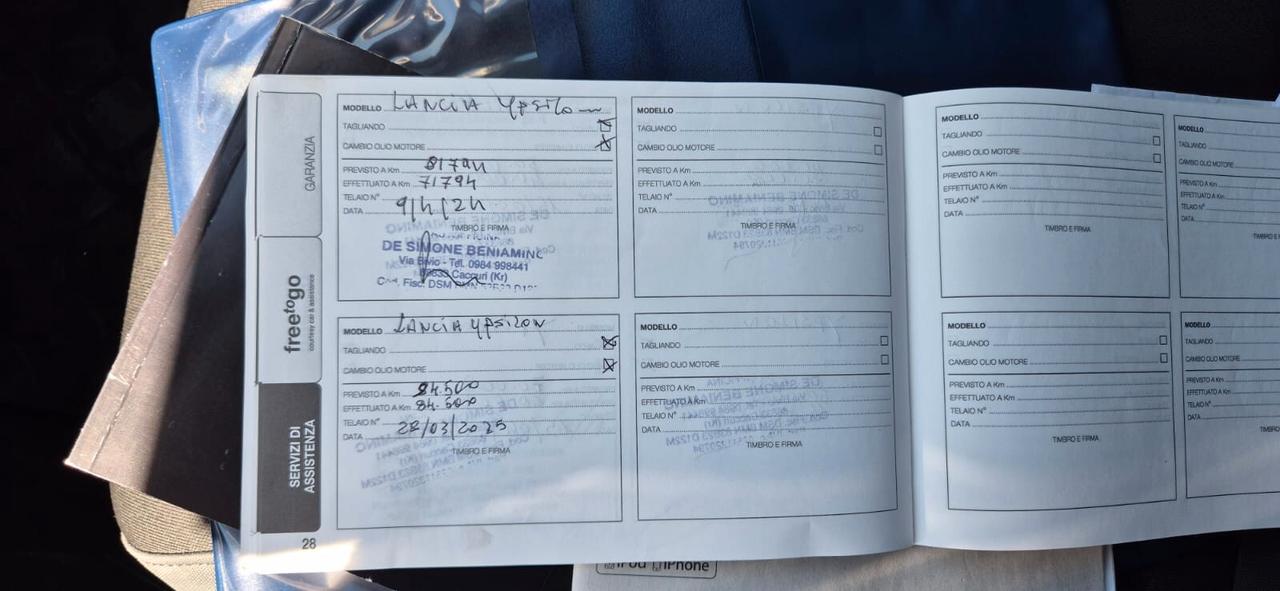 GARANZIA
free to go
courtesy car & assistance
SERVIZI DI
ASSISTENZA
28
MODELLO LANCIA YPSILON
TAGLIANDO
CAMBIO OLIO MOTORE
PREVISTO A Km
EFFETTUATO A Km 71794
TELAIO N°
DATA 9/4/24
TIMBRO E FIRMA
DE SIMONE BENIAMINO
Via Bivio - Tel. 0984 998441
Caccuri (Kr)
Fisc. DSM
MODELLO LANCIA YPSILON
TAGLIANDO
CAMBIO OLIO MOTORE
PREVISTO A Km 84500
EFFETTUATO A Km 84.500
TELAIO N°
DATA 28/03/2025
TIMBRO E FIRMA
MODELLO
TAGLIANDO
CAMBIO OLIO MOTORE
PREVISTO A Km
EFFETTUATO A Km
TELAIO N°
DATA
TIMBRO E FIRMA
MODELLO
TAGLIANDO
CAMBIO OLIO MOTORE
PREVISTO A Km
EFFETTUATO A Km
TELAIO N°
DATA
TIMBRO E FIRMA
MODELLO
TAGLIANDO
CAMBIO OLIO MOTORE
PREVISTO A Km
EFFETTUATO A Km
TELAIO N°
DATA
TIMBRO E FIRMA
MODELLO
TAGLIANDO
CAMBIO OLIO MOTORE
PREVISTO A Km
EFFETTUATO A Km
TELAIO N°
DATA
TIMBRO E FIRMA
MODELLO
TAGLIANDO
CAMBIO OLIO MOTORE
PREVISTO A Km
EFFETTUATO A Km
TELAIO N°
DATA
MODELLO
TAGLIANDO
CAMBIO OLIO MOTORE
PREVISTO A Km
EFFETTUATO A Km
TELAIO N°
DATA
iPod iPhone